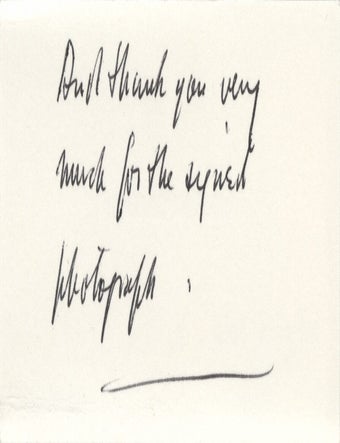 And thank you very
much for the signed
photograph .